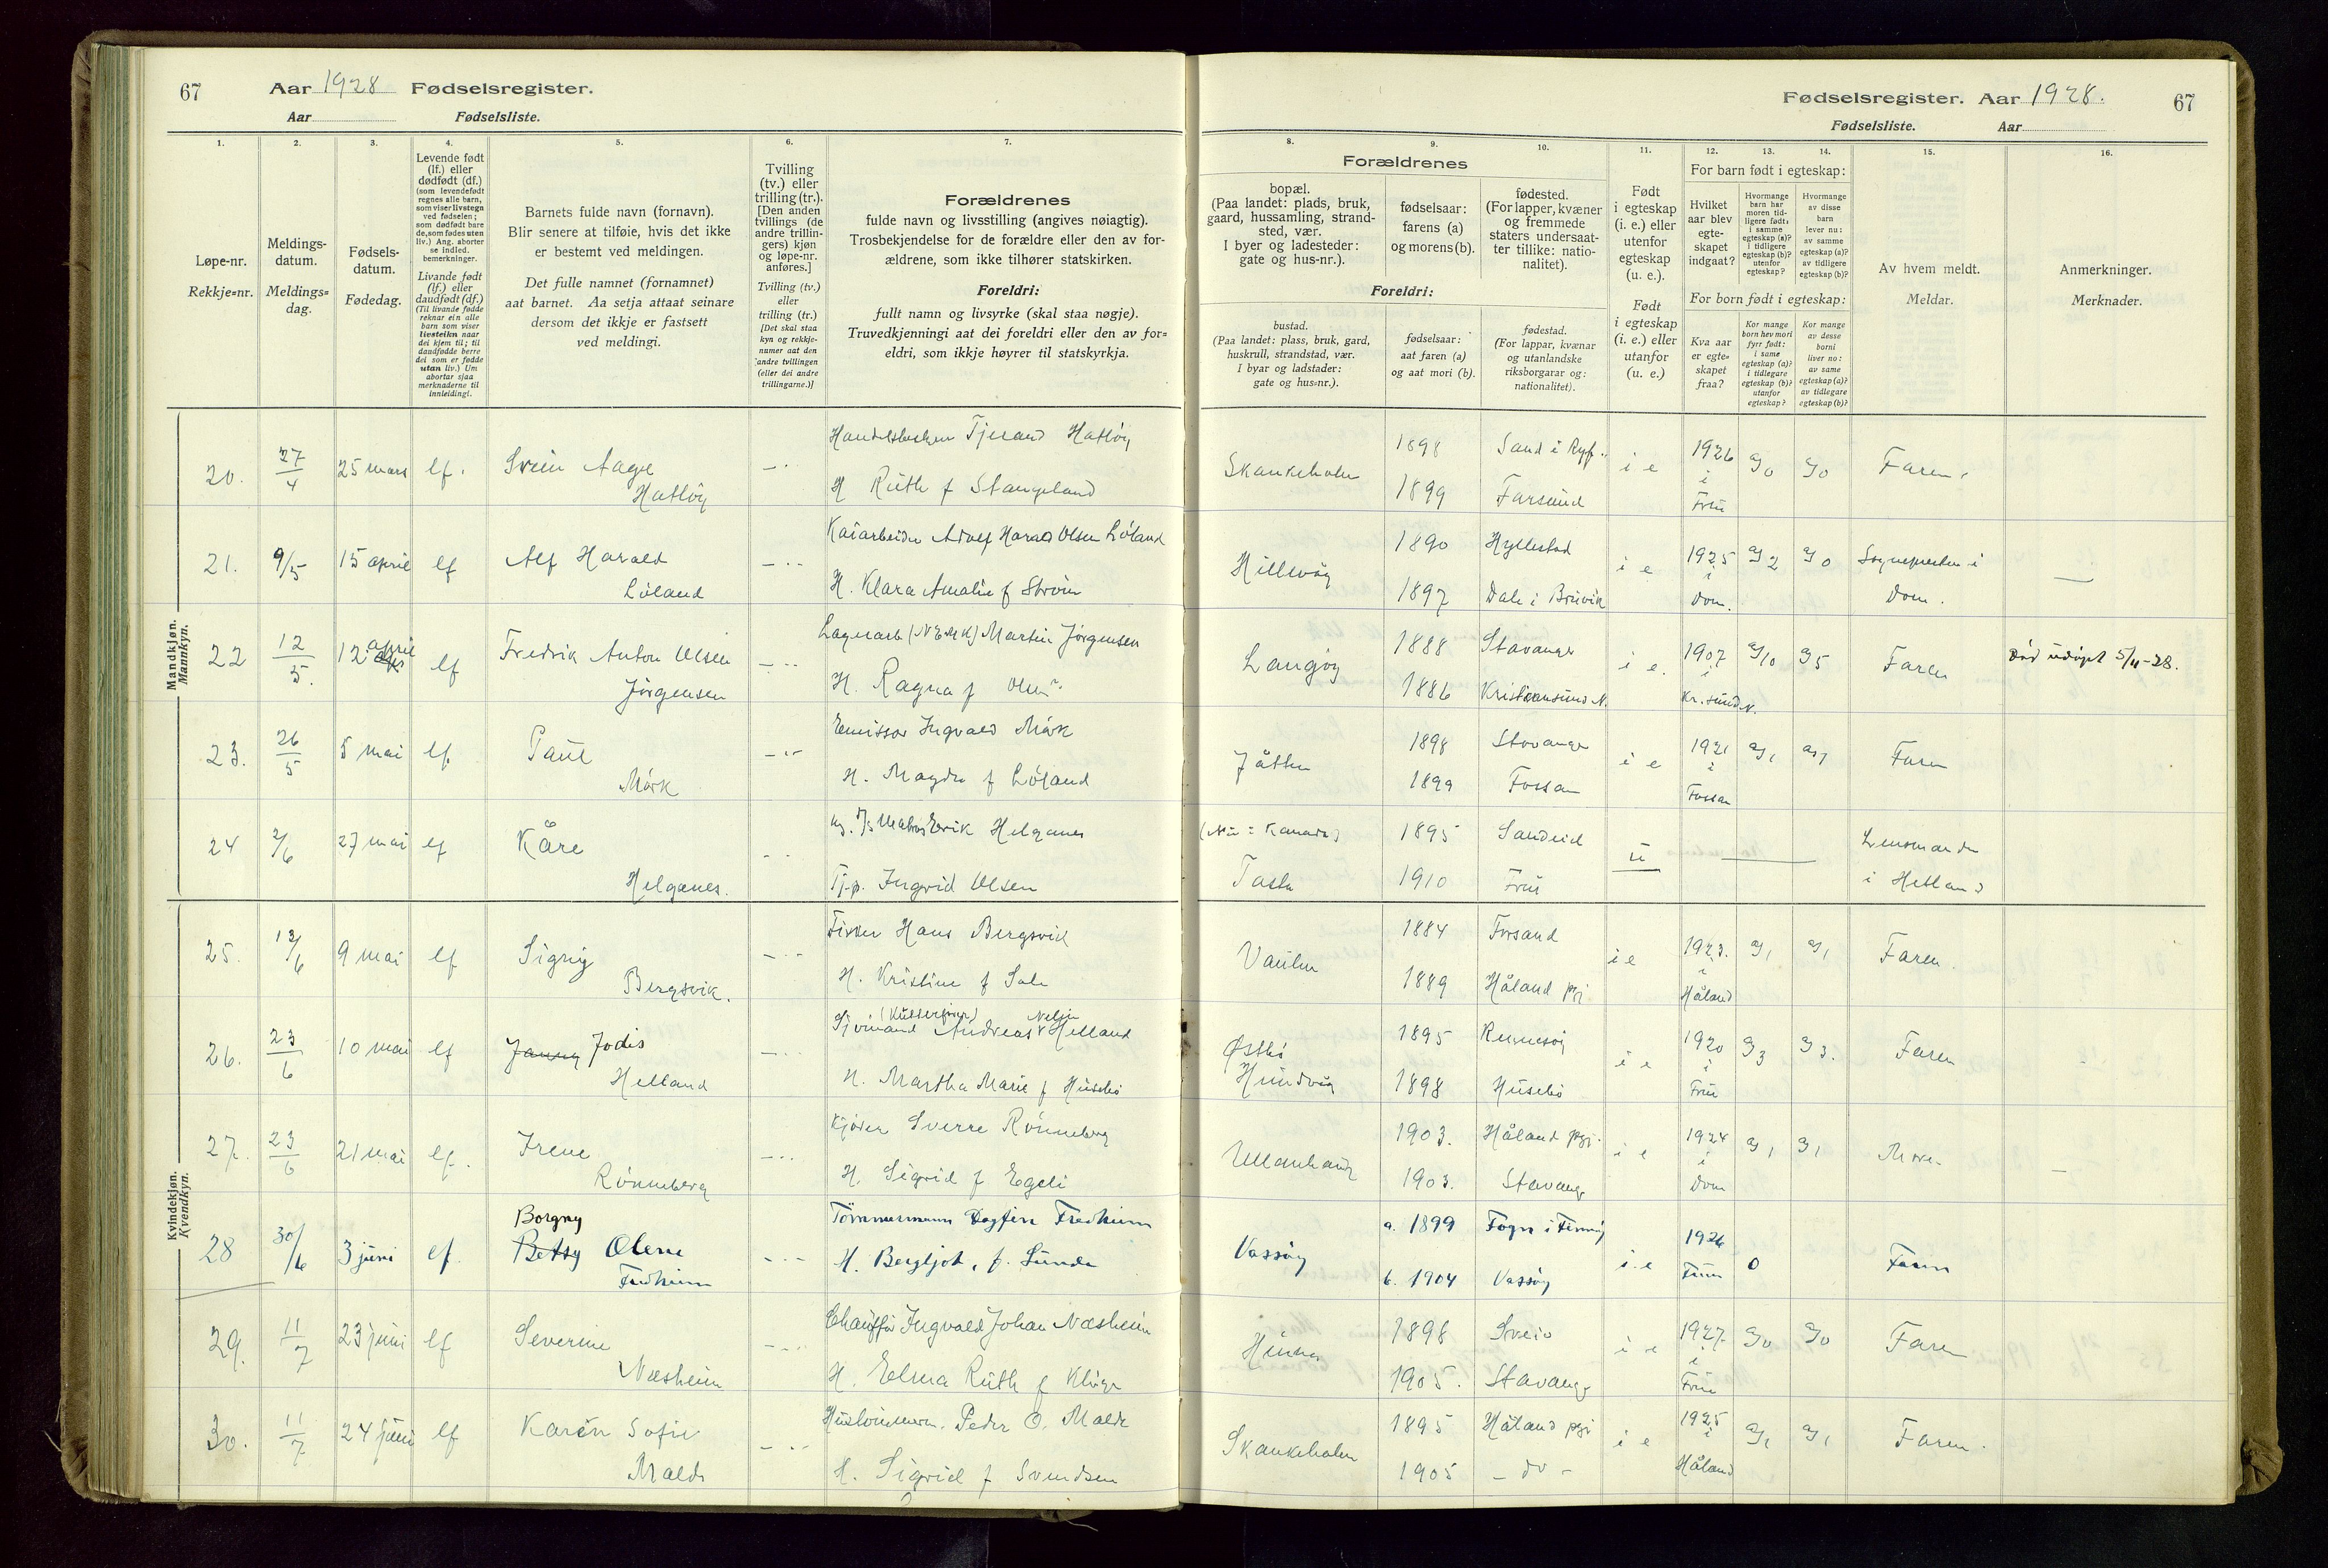 67
Aar 1928 Fødselsregister.
Aar Fødselsliste.
1.
2.
3.
4.
5.
6.
7.
Løpe-nr.
Rekkje=nr.
Meldings-
datum.
Meldings=
dag.
Fødsels-
datum.
Fødedag.
Levende født
(lf.) eller
dødfødt (df.)
(som levendefødt
regnes alle barn,
som viser livstegn
ved fødselen;
som dødfødt bare
de, som fødes uten
liv.) Ang. aborter
se indled.
bemerkninger.
Livande født
(lf.) eller
daudfødt (df.)
(Til livande fødde
reknar ein alle
born som viser
livsteikn naar
dei kjem til; til
daudfødde berre
dei som er fødde
utan liv.) Um
abortar sjaa
merknaderne til
innleidingi.
Barnets fulde navn (fornavn).
Blir senere at tilføie, hvis det ikke
er bestemt ved meldingen.
Det fulle namnet (fornamnet)
aat barnet. Aa setja attaat seinare
dersom det ikkje er fastsett
ved meldingi.
Tvilling
(tv.) eller
trilling (tr.).
[Den anden
tvillings (de
andre trillin-
gers) kjøn
og løpe-nr.
anføres.]
Tvilling (tv.)
eller
trilling (tr.)
[Det skal staa
kyn og rekkje-
numer aat den
andre tvillingen
(eller dei andre
trillingarne.)]
Forældrenes
fulde navn og livsstilling (angives nøiagtig).
Trosbekjendelse for de forældre eller den av for-
ældrene, som ikke tilhører statskirken.
Foreldri:
fullt namn og livsyrke (skal staa nøgje).
Truvedkjenningi aat dei foreldri eller den av for=
eldri, som ikkje høyrer til statskyrkja.
Mandkjøn.
Mannkyn.
20. 27/4 25 mars lf. Svein Aage Hatløy
Tjerand Hatløy
H Ruth f Stangeland
21. 9/5 15 april lf Alf Harald Løland
Kaiarbeider Adolf Harald Olsen Løland
H. Klara Amalie f Strøm
22 12/5. 12 april lf Fredrik Anton Olsen Jørgensen
Lagerarb (NEMK) Martin Jørgensen
H. Ragna f Olsen
23. 26/5 5 mai lf Paul Mørk
Emissær Ingvald Mørk
H. Magda f Løland
24 2/6 27 mai lf Kåre Helganes.
Erik Helganes
Tj.p. Ingrid Olsen
Kvindekjøn.
Kvendkyn.
25. 13/6 9 mai lf Sigrig Bergsvik.
Fisker Hans Bergsvik
H. Kristine f Sole
26. 23/6 10 mai lf Jenny Jodis Helland
Sjømand Andreas Nelsin Helland
H. Martha Marie f Husebø
27. 23/6 21 mai lf. Irene Rønneberg
Kjører Sverre Rønneberg
H. Sigrid f Egeli
28 30/6 3 juni lf. Borgny
Betsy Olene Fredheim
Tømmermann Dagfin Fredheim
H. Bergljot, f. Sunde
29. 11/7 23 juni lf Severine Næsheim
Chauffør Ingvald Johan Næsheim
H. Elma Ruth f Kluge
30. 11/7 24 juni lf Karen Sofie Malde
Hustømmerm. Peder O. Malde
H. Sigrid f Svendsen
Fødselsregister. Aar 1928.
67
Fødselsliste. Aar
8.
9.
10.
11.
12.
13.
14.
15.
16.
Forældrenes
bopæl.
(Paa landet: plads, bruk,
gaard, hussamling, strand-
sted, vær.
I byer og ladesteder:
gate og hus-nr.).
fødselsaar:
farens (a)
og morens (b).
fødested.
(For lapper, kvæner
og fremmede
staters undersaat-
ter tillike: natio-
nalitet).
Foreldri:
bustad.
(Paa landet: plass, bruk, gard,
huskrull, strandstad, vær.
I byar og ladstader:
gate og hus-nr.).
fødselsaar:
aat faren (a)
og aat mori (b).
fødestad.
(For lappar, kvænar
og utanlandske
riksborgarar og:
nationalitet).
Født
i egteskap
(i. e.) eller
utenfor
egteskap
(u. e.).
Født
i egteskap
(i. e.) eller
utanfor
(u. e.)
For barn født i egteskap:
Hvilket
aar blev
egte-
skapet
indgaat?
Hvormange
barn har
moren tid-
ligere født:
i samme
egteskap (a)?
i tidligere
egteskap (b)?
utenfor
egteskap?
Hvormange
av disse
barn
lever nu:
av samme
egteskap (a)?
av tidligere
egteskap (b)?
For born født i egteskap:
Kva aar
er egte-
skapet
fraa?
Kor mange
born hev mori
fyrr født:
i same
egteskap (a)?
i tidlegare
egteskap (b)?
utanfor
egteskap?
Kor mange
av desse
borni
liver no:
av same
egteskap (a)?
av tidlegare
egteskap (b)?
Av hvem meldt.
Meldar.
Anmerkninger.
Merknader.
Skankeholm 1898 Sand i Ryf. i e 1926 i Frue a/0 a/0 Faren.
1899 Farsund
Hillevåg 1890 Hyllestad i e 1925 i Dom. a/2 a/0 Sognepresten i Dom.
1897 Dale i Bruvik
Langøy 1888 Stavanger i e. 1907 i Kr.sund N. a/10 a/5 Faren Død udøpt 5/11-28.
1886 Kristiansund N.
Jåtten 1898 Stavanger i e 1921 i Fossan a/1 a/1 Faren
1899 Fossan
(Nu: Kanada) 1895 Sandeid u Lensmanden
Tasta 1910 Frue i Hetland
Vaulen 1884 Forsand i e 1923. i Håland a/1 a/1 Faren.
1889 Håland pgj
Østbø 1895 Rennesøy i e 1920 i Frue a/3 a/3. Faren
Hundvåg 1898 Husebø
Ullenhaug 1903. Håland pgj. i e 1924 i Dom a/1 a/1 Moren
1903. Stavanger
Vassøy a. 1899 Fogn i Finnøy i. e 1926 Frue 0 Faren
b. 1904 Vassøy
Hinna 1898 Sveio i e 1927. i Frue a/0 a/0 Faren
1905. Stavanger
Skankeholm 1895 Håland pgj i e 1925 i Håland a/1 a/1 Faren.
1905 - do -